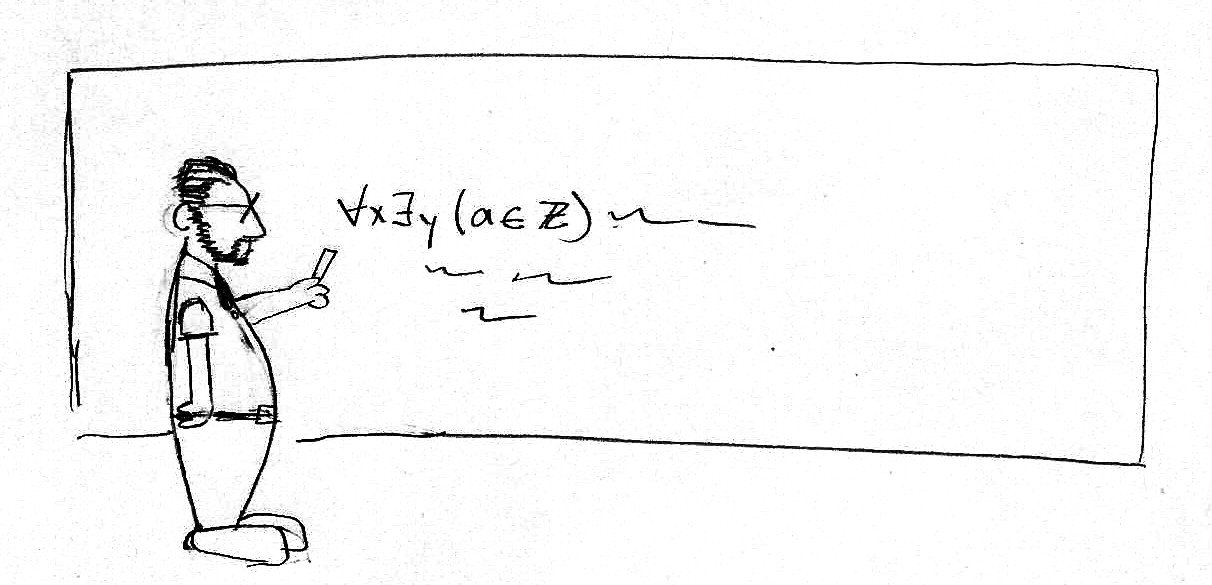 ∀x∃y(a∈ℤ)